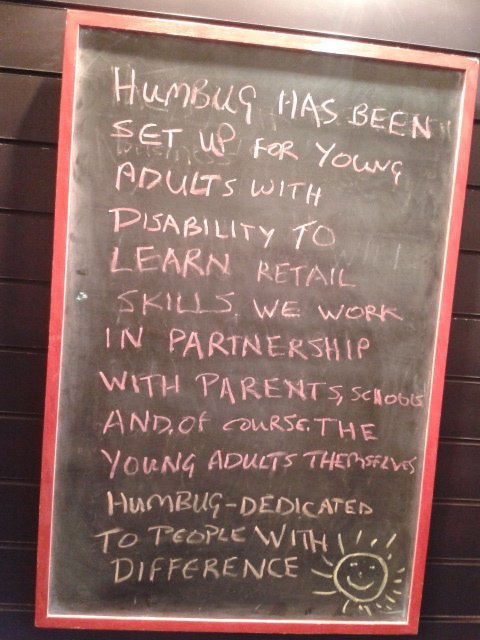 HUMBUG HAS BEEN
SET UP FOR YOUNG
ADULTS WITH
DISABILITY TO
LEARN RETAIL
SKILLS. WE WORK
IN PARTNERSHIP
WITH PARENTS, SCHOOLS
AND, OF COURSE, THE
YOUNG ADULTS THEMSELVES
HUMBUG-DEDICATED
TO PEOPLE WITH
DIFFERENCE